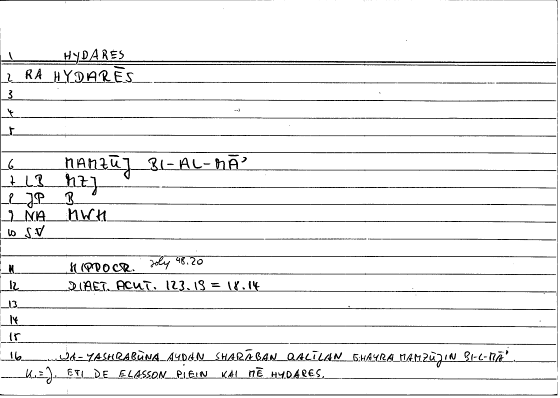 1 HYDARES
2 RA HYDARĒS
3
4
5
6 MAMZŪJ BI-AL-MĀʾ
7 LB MZJ
8 JP B
9 NA MWH
10 SV
11 HIPPOCR. Joly 48.20
12 DIAET. ACUT. 123.19 = 18.14
13
14
15
16 WA-YASHRABŪNA AYDAN SHARĀBAN QALĪLAN GHAYRA MAMZŪJIN BI-L-MĀʾ.
U.=J. ETI DE ELASSON PIEIN KAI MĒ HYDARES.